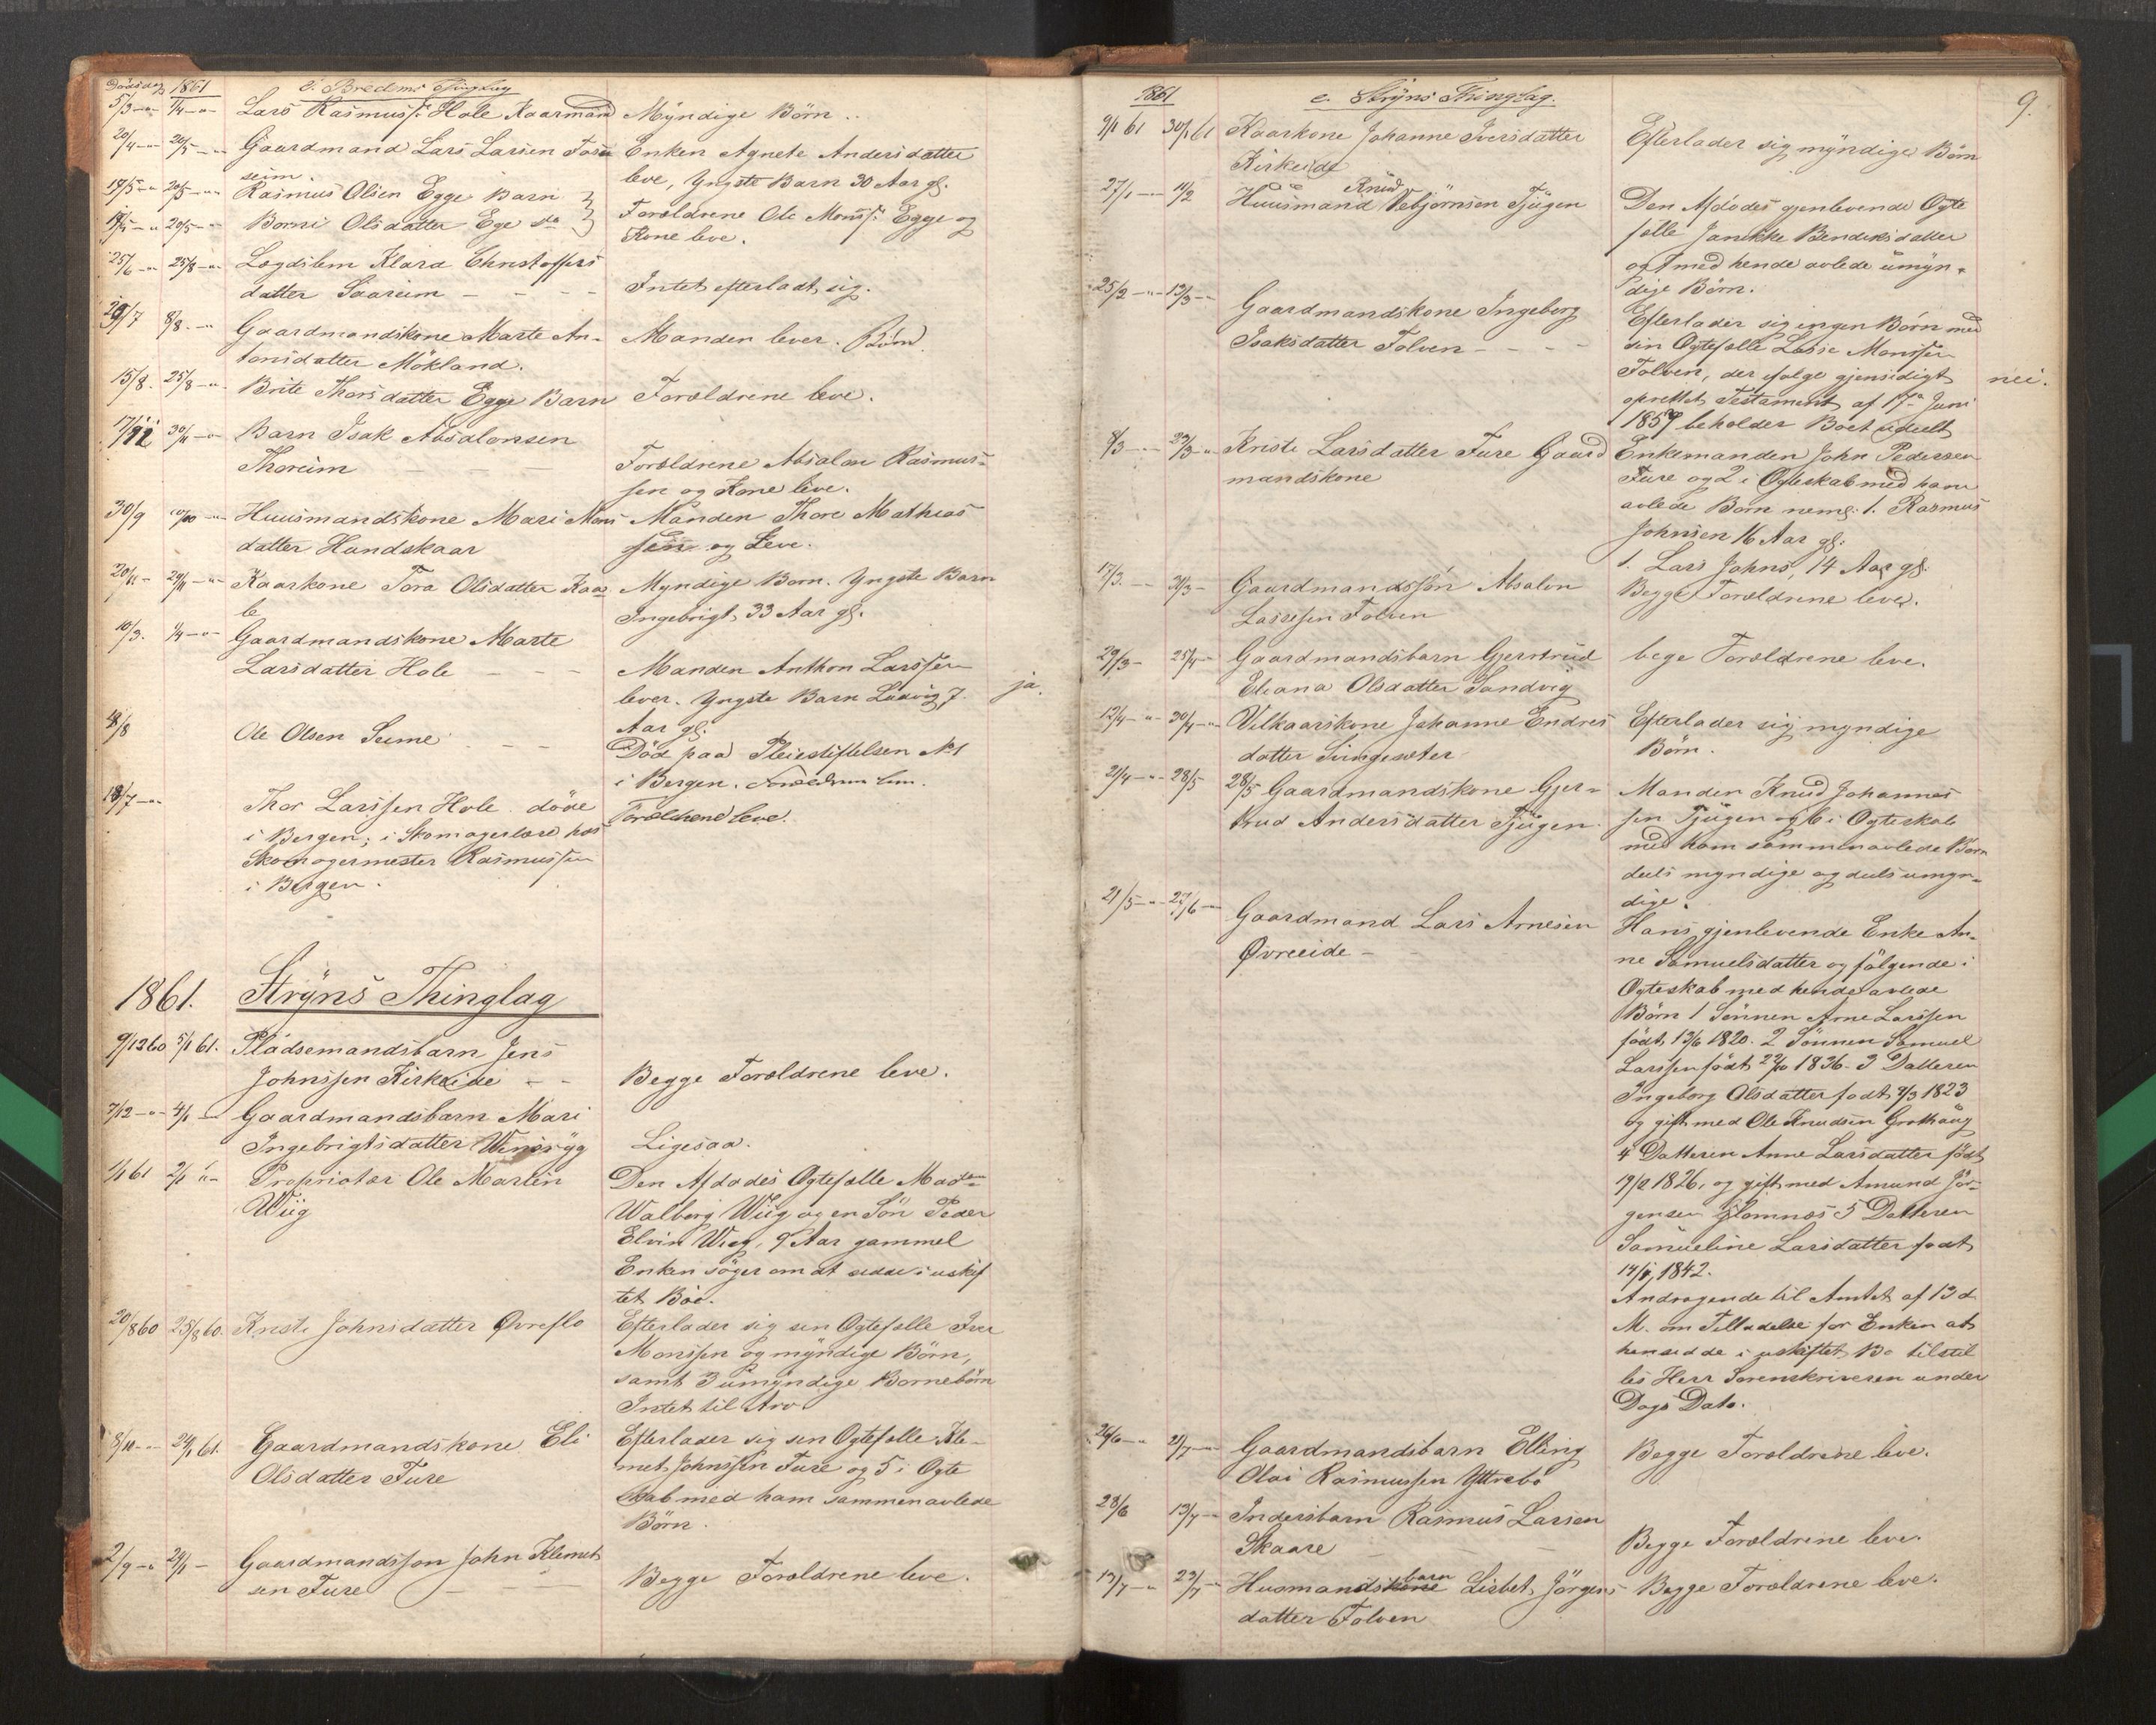 Dödsdag 1861 e. Bredens Thinglag
5/3 -"- 1/4 -"- Lars Rasmuss: Hole Kaarmand Myndige Börn ..
20/4 -"- 20/5 -"- Gaardmand Lars Larsen Tose Enken Agnete Andersdatter
seim. leve, Yngste Barn 30 Aar gl.
19/5 -"- 20/5 -"- Rasmus Olsen Egge Barn } Forældrene Ole Monss: Egge og
20/5 -"- Borni Olsdatter Ege do } Kone leve.
25/6 -"- 25/8 -"- Lægdslem Klara Christoffers
datter Saarum - - - Intet efterladt sig.
29/7 8/8 -"- Gaardmandskone Marte An- Manden lever. Börn
tonsdatter Mökland.
15/8. 25/8 -"- Brite Thorsdatter Egge Barn Forældrene leve.
30/11 -"- Barn Isak Absalonsen
Thoreim - - - Forældrene Absalon Rasmus-
sen og Kone leve.
30/9 10/10 -"- Huusmandskone Mari Mons Manden Thore Mathias
datter Hundskaar sen og Leve.
20/11 - 29/11 -"- Kaarkone Tora Olsdatter Kaar Myndige Born. Yngste Barn
le Ingebrigt, 33 Aar gl.
10/3. 1/4 -"- Gaardmandskone Marte
Larsdatter Hole - - - Manden Anthon Larssen
lever. Yngste Barn Ludvig 7. ja.
Aar gl.
4/8 Ole Olsen Seime - - Död paa Pleiestiftelsen No 1
i Bergen. Forældrene leve.
18/7 -"- Thor Larssen Hole döde Forældrene leve.
i Bergen; i Skomagerlære hos
Skomagermester Rasmussen
i Bergen.
1861. Stryns Thinglag
9/12 60 5/1 61. Pladsemandsbarn Jens
Johnssen Kirkeide - - Begge Forældrene leve.
7/12 -"- 4/1 -"- Gaardmandsbarn Mari
Ingebrigtsdatter Ligesaa.
1/1 61 2/1 "- Proprietær Ole Martin Den Afdødes Ogtefælle Madm
Wiig Walborg Wiig og en Sön Peder
Elvin Wiig, 9 Aar gammel
Enken söger om at sidde i uskif
tet Boe.
20/8 60 25/8 60. Kriste Johnsdatter Øvreflo Efterlader sig sin Ogtefælle Iver
Monssen og myndige Börn,
samt 3 umyndige Bornebörn
Intet til Arv
8/10 -"- 24/1 61. Gaardmandskone Eli Efterlader sig sin Ogtefælle Kle-
Olsdatter Fure met Johnssen Fure og 5 i Ogte
skab med ham sammenavlede
Börn.
2/9 -"- 24/1 - Gaardmandssön John Klemet
sen Fure - - Begge Forældrene leve.
1861 e. Stryns Thinglag. 9.
9/1 61 30/1 61 Kaarkone Johanne Iversdatter Efterlader sig myndige Börn
Kirkeide
27/1 -"- 11/2 Huusmand Knud Vebjörnsen Tjugen Den Afdödes gjenlevende Ogte
fælle Janikke Bendiksdatter
og 1 med hende avlede umyn-
dige Börn.
25/2 -"- 13/3 -"- Gaardmandskone Ingeborg Efterlader sig ingen Börn med
Isaksdatter Folven - - - sin Ogtefælle Lasse Monssen
Folven, der ifolge gjensidigt nei.
oprettet Testament af 17de Juni
1857 beholder Boet udeelt
8/3 -"- 23/3 -"- Kriste Larsdatter Fure Gaard Enkemanden John Pedersen
mandskone Fure og 2 i Ogteskab med ham
avlede Born neml: 1. Rasmus
Johnsen 16 Aar gl.
1. Lars Johns, 14 Aar gl.
17/3. -"- 30/3 - Gaardmandssön Absalon Begge Forældrene lever.
Lassesen Folven
29/3 - 25/4 -"- Gaardmandsbarn Gjertrud bege Forældrene leve.
Eliana Olsdatter Sandvig
12/4 -"- 30/4 -"- Vilkaarskone Johanne Endres Efterlader sig myndige
datter Sungesæter Börn.
21/4 -"- 28/5 28/5 Gaardmandskone Gjer- Manden Knud Johannes
trud Andersdatter Tjugen. sen Tjugen og 6 i Ogteskab
med ham sammenavlede Börn
deels myndige og deels umyn-
dige.
21/5 -"- 27/6 -"- Gaardmand Lars Arnesen Hans gjenlevende Enke An-
Øvreeide - ne Samuelsdatter og fölgende i
Ogteskab med hende avlede
Börn 1 Sönnen Arne Larssen
födt 13/6 1820. 2 Sönnen Samuel
Larssen födt 22/10 1836. 3 Datteren
Ingeborg Olsdatter født 9/3 1823
og gift med Ole Knudsen Grothaug
4 Datteren Anne Larsdatter födt
19/2 1826, og gift med Amund Jör-
gensen Glomnæs 5 Datteren
Samueline Larsdatter født
14/8, 1842.
Andragende til Amtet af 13 d
M. om Tilladelse for Enken at
hensidde i uskiftet Bo tilstil
les Herr Sorenskriveren under
Dags Dato.
26/6 -"- 2/7 -"- Gaardmandsbarn Elling Begge Forældrene leve.
Olai Rasmussen Yttrebö
28/6 13/7 -"- Indersbarn Rasmus Larsen
Skaare - - Begge Forældrene leve.
13/7 -"- 23/7 -"- Husmandskone barn Lisbet Jörgens Begge Forældrene leve.
datter Folven